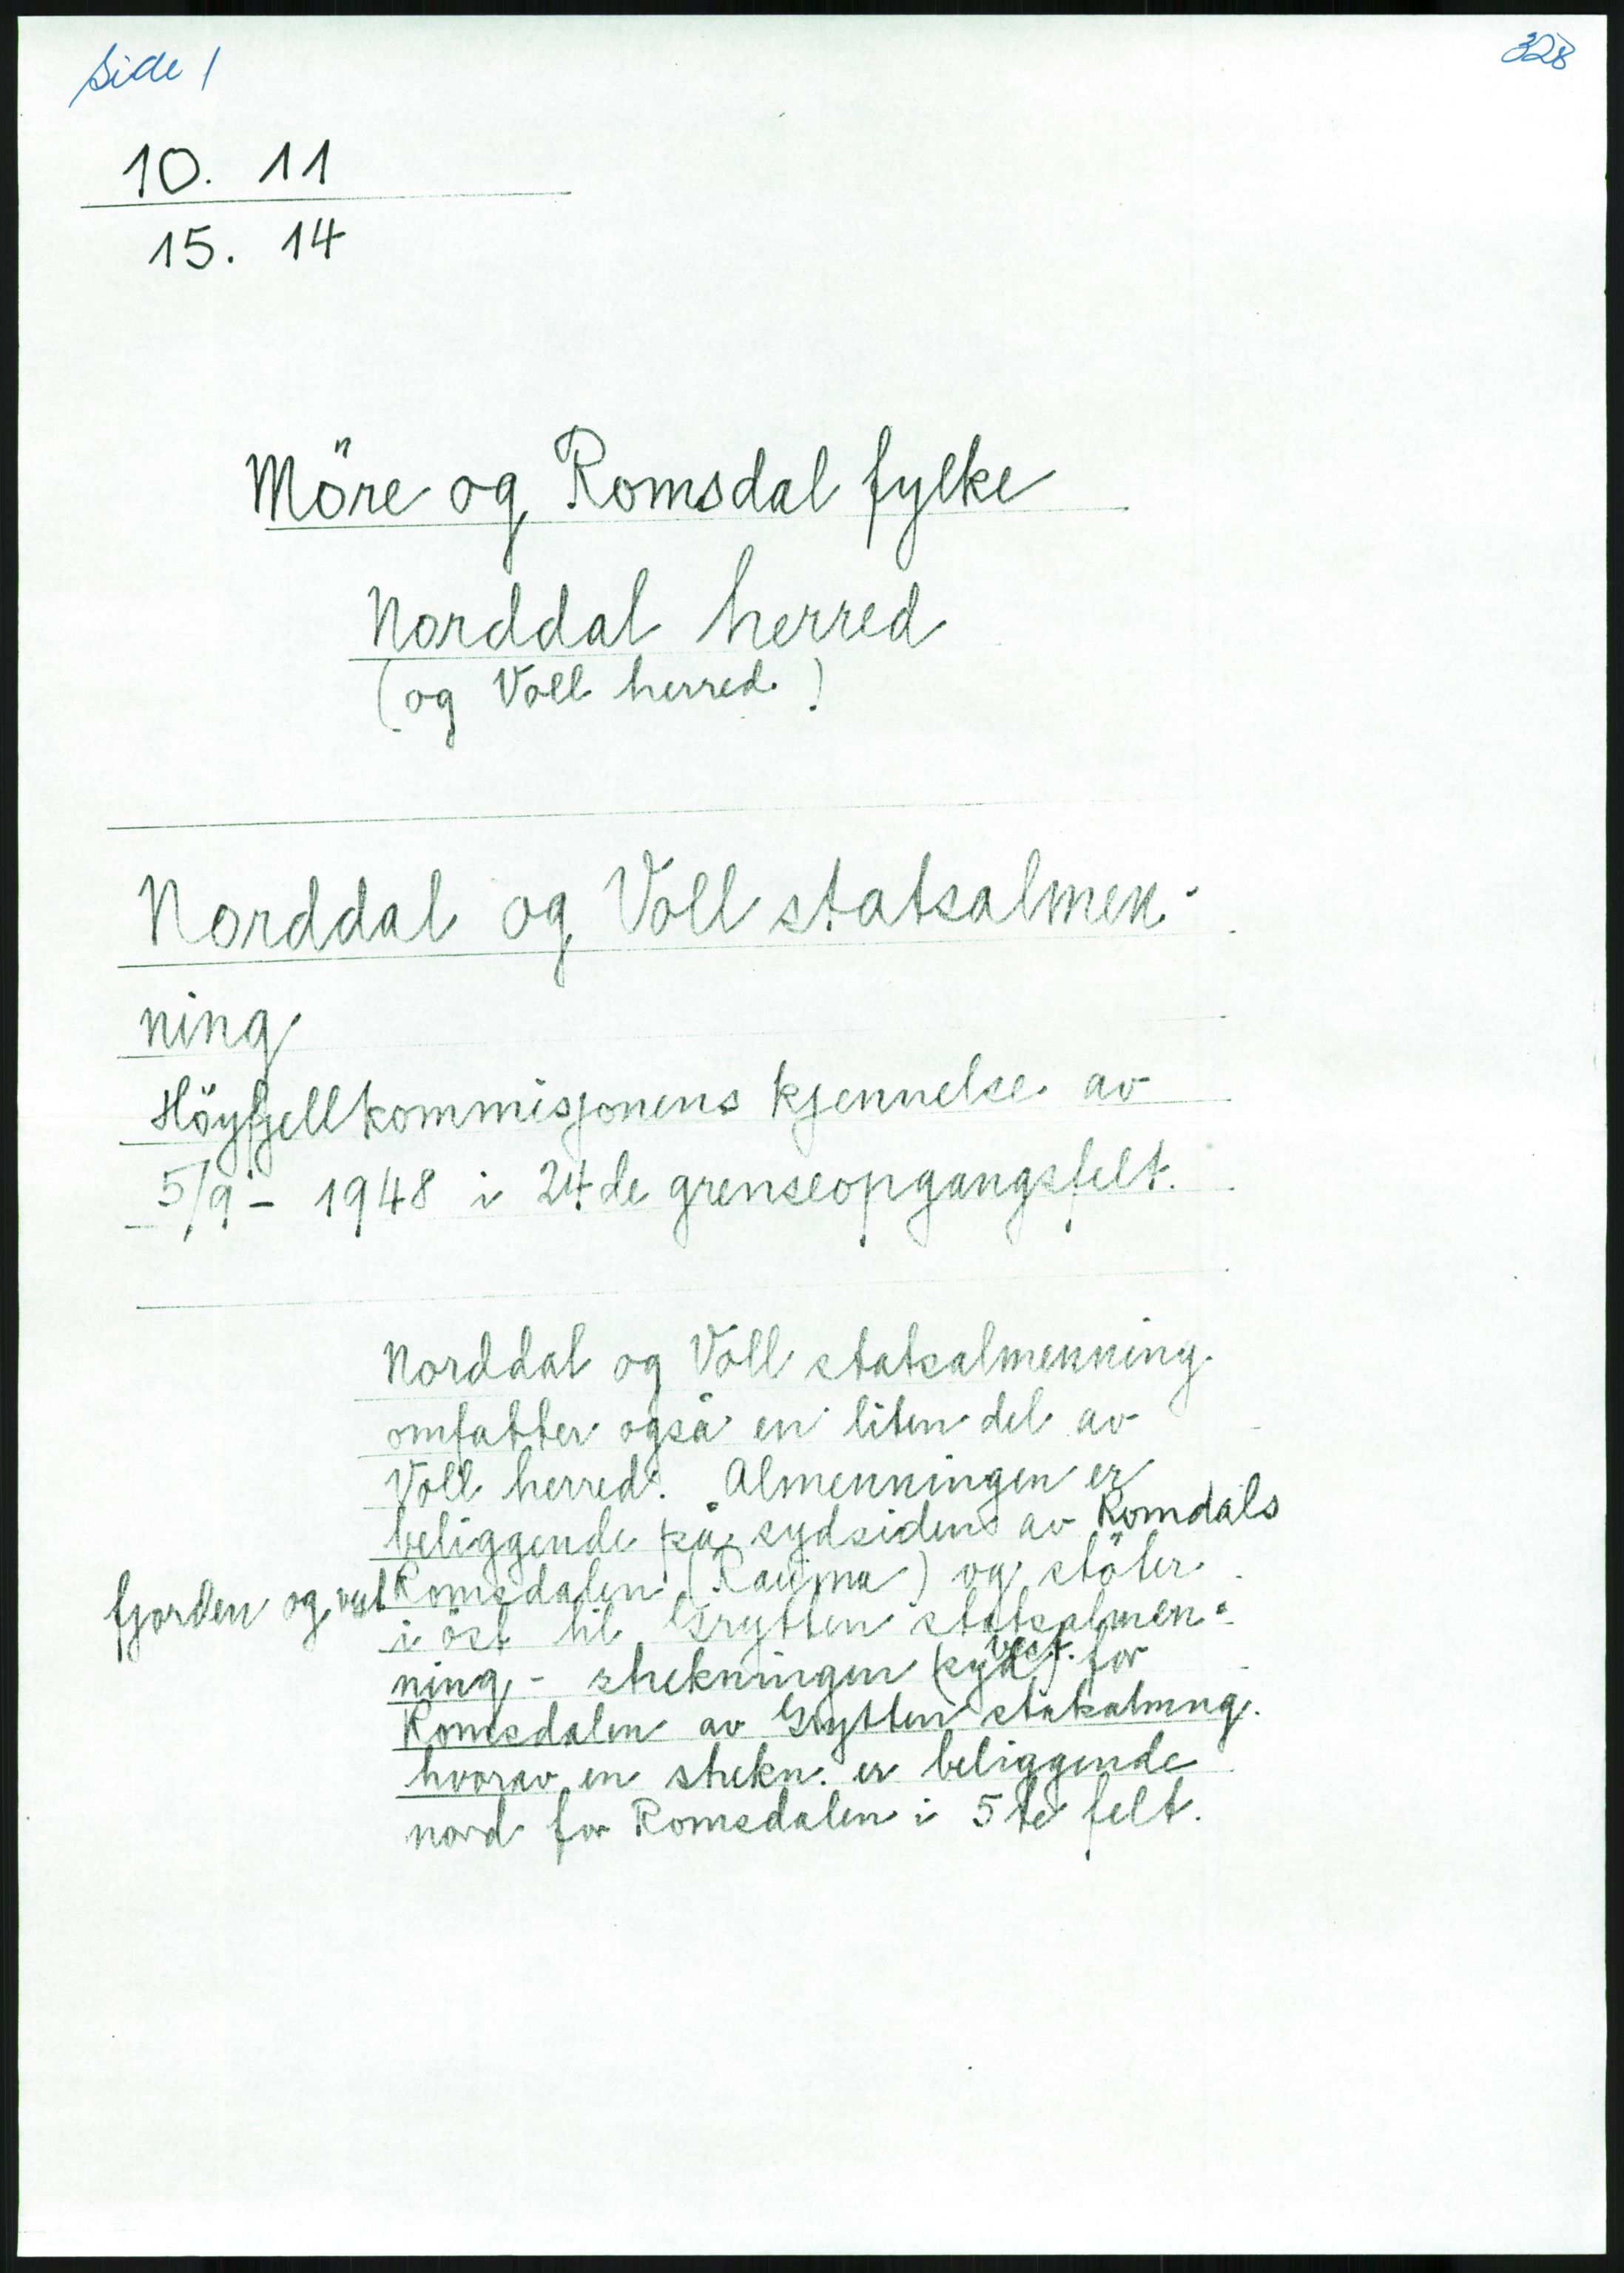 Side 1
328
10. 11
15. 14
Möre og Romsdal fylke
Norddal herred
(og Voll herred.)
Norddal og Voll statsalmen-
ning
Höyfjellkommisjonens kjennelse av
5/9 - 1948 i 24de grenseopgangsfelt.
Norddal og Voll statsalmenning
omfatter også en liten del av
Voll herred. Almenningen er
beliggende på sydsiden av Romdals
fjorden og vest Romsdalen (Rauma) og stöter
i öst til Grytten statsalmen-
ning - strekningen (syd) vest. for
Romsdalen av Grytten statsalmng.
hvorav en strekn. er beliggende
nord for Romsdalen i 5te felt.